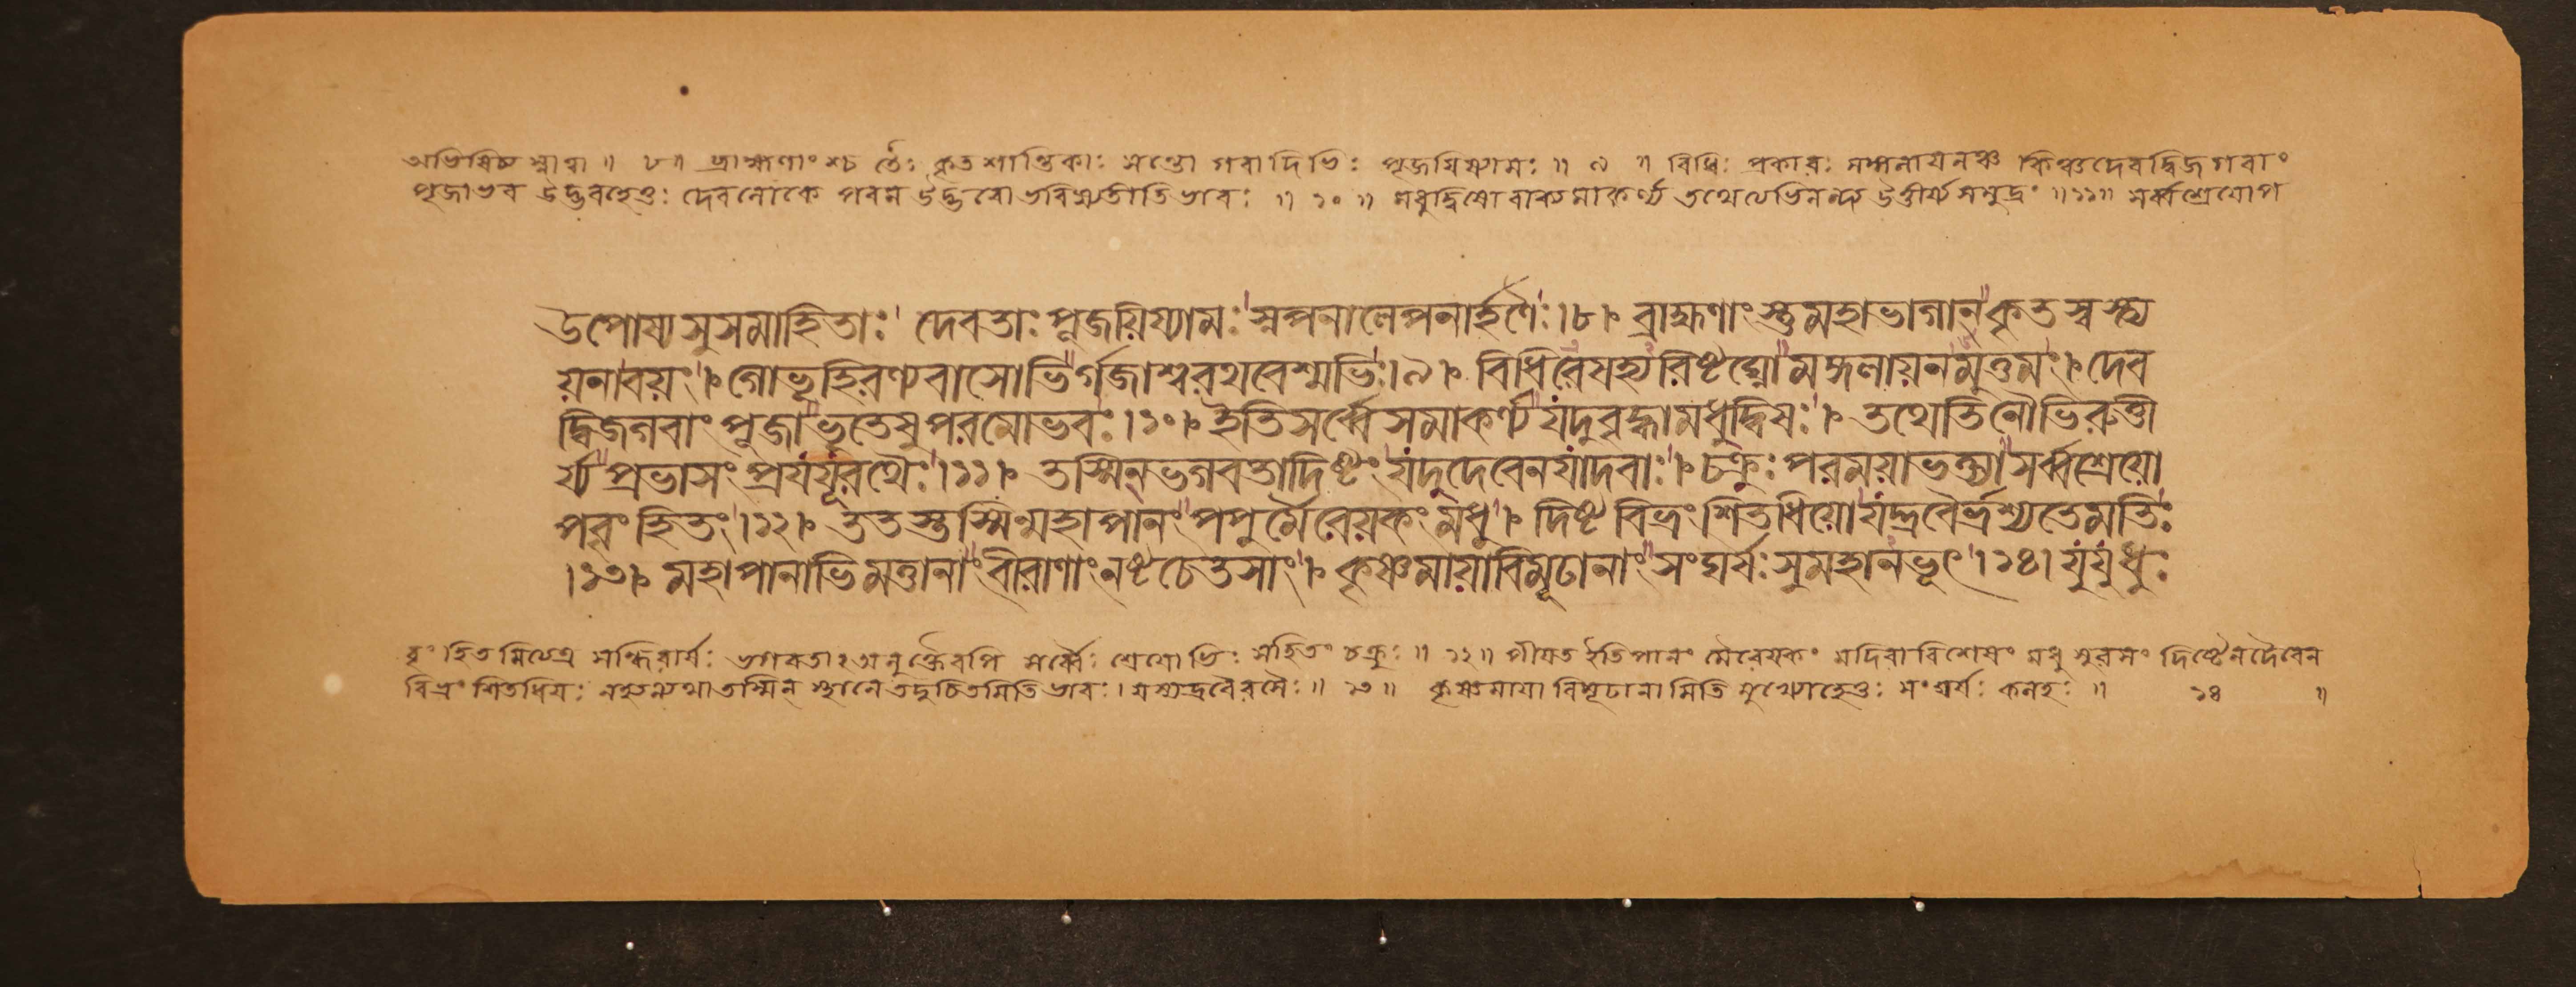 অভিষিচ্য স্নাত্বা ॥ ৮॥ ব্রাহ্মণাংশ্চ তৈঃ কৃত শান্তিকাঃ সন্তো গবাদিভিঃ পূজয়িষ্যামঃ ॥ ৯ ॥ বিধিঃ প্রকারঃ মঙ্গলায়নঞ্চ কিঞ্চদেবদ্বিজগবাং
পূজাভব উদ্ভবহেতুঃ দেবলোকে পরম উদ্ভবো ভবিষ্যতীতিভাবঃ ॥ ১০ ॥ মধুদ্বিষো বাক্যমাকর্ণ্য তথেত্যভিনন্দ্য উত্তীর্য্য সমুদ্রং ॥১১॥ সর্ব্বশ্রেয়োপ
উপোষ্য সুসমাহিতাঃ দেবতাঃ পূজয়িষ্যামঃ স্নপনালেপনার্হণৈঃ।৮। ব্রাহ্মণাংস্তুমহাভাগান্ কৃতস্বস্ত্য
য়নাবয়ং। গোভূহিরণ্যবাসোভির্গজাশ্বরথবেশ্মভিঃ।৯। বিধিরেষহ্যরিষ্টঘ্নোমঙ্গলায়নমুত্তমং। দেব
দ্বিজগবাং পূজাভূতেষুপরমোভবঃ।১০। ইতিসর্ব্বেসমাকর্ণ্যযদুবৃদ্ধামধুদ্বিষঃ। তথেতিনৌভিরুত্তী
র্য্য প্রভাসং প্রযযূরথৈঃ।১১। তস্মিন্ভগবতাদিষ্টং যদুদেবেনযাদবাঃ। চক্রুঃ পরময়াভক্ত্যাসর্ব্বশ্রেয়ো
পবৃংহিতং।১২। ততস্তস্মিন্মহাপানং পপুর্মৈরেয়কংমধু। দিষ্টবিভ্রংশিতধিয়োযদ্দ্রবৈর্ভ্রশ্যতেমতিঃ
।১৩। মহাপানাভিমত্তানাংবীরাণাংনষ্টচেতসাং। কৃষ্ণমায়াবিমূঢানাং সংঘর্ষঃসুমহানভূৎ।১৪। যুযুধুঃ
বৃংহিতমিত্যত্র সন্ধিরার্ষঃ ভগবতাঽঅনুক্তৈরপি সর্ব্বৈঃ শ্রেয়োভিঃ সহিতং চক্রুঃ ॥ ১২॥ পীয়ত ইতিপানং মৈরেয়কং মদিরাবিশেষং মধু সুরসং দিষ্টেনদৈবেন
বিভ্রংশিতধিয়ঃ তস্মিন্ স্থানে তদুচিতমিতিভাবঃ। যস্যদ্রবৈরসৈঃ॥ ১৩॥ কৃষ্ণমায়াবিমূঢানামিতি মুখ্যোহেতুঃ সংঘর্ষঃ কলহঃ ॥ ১৪ ॥